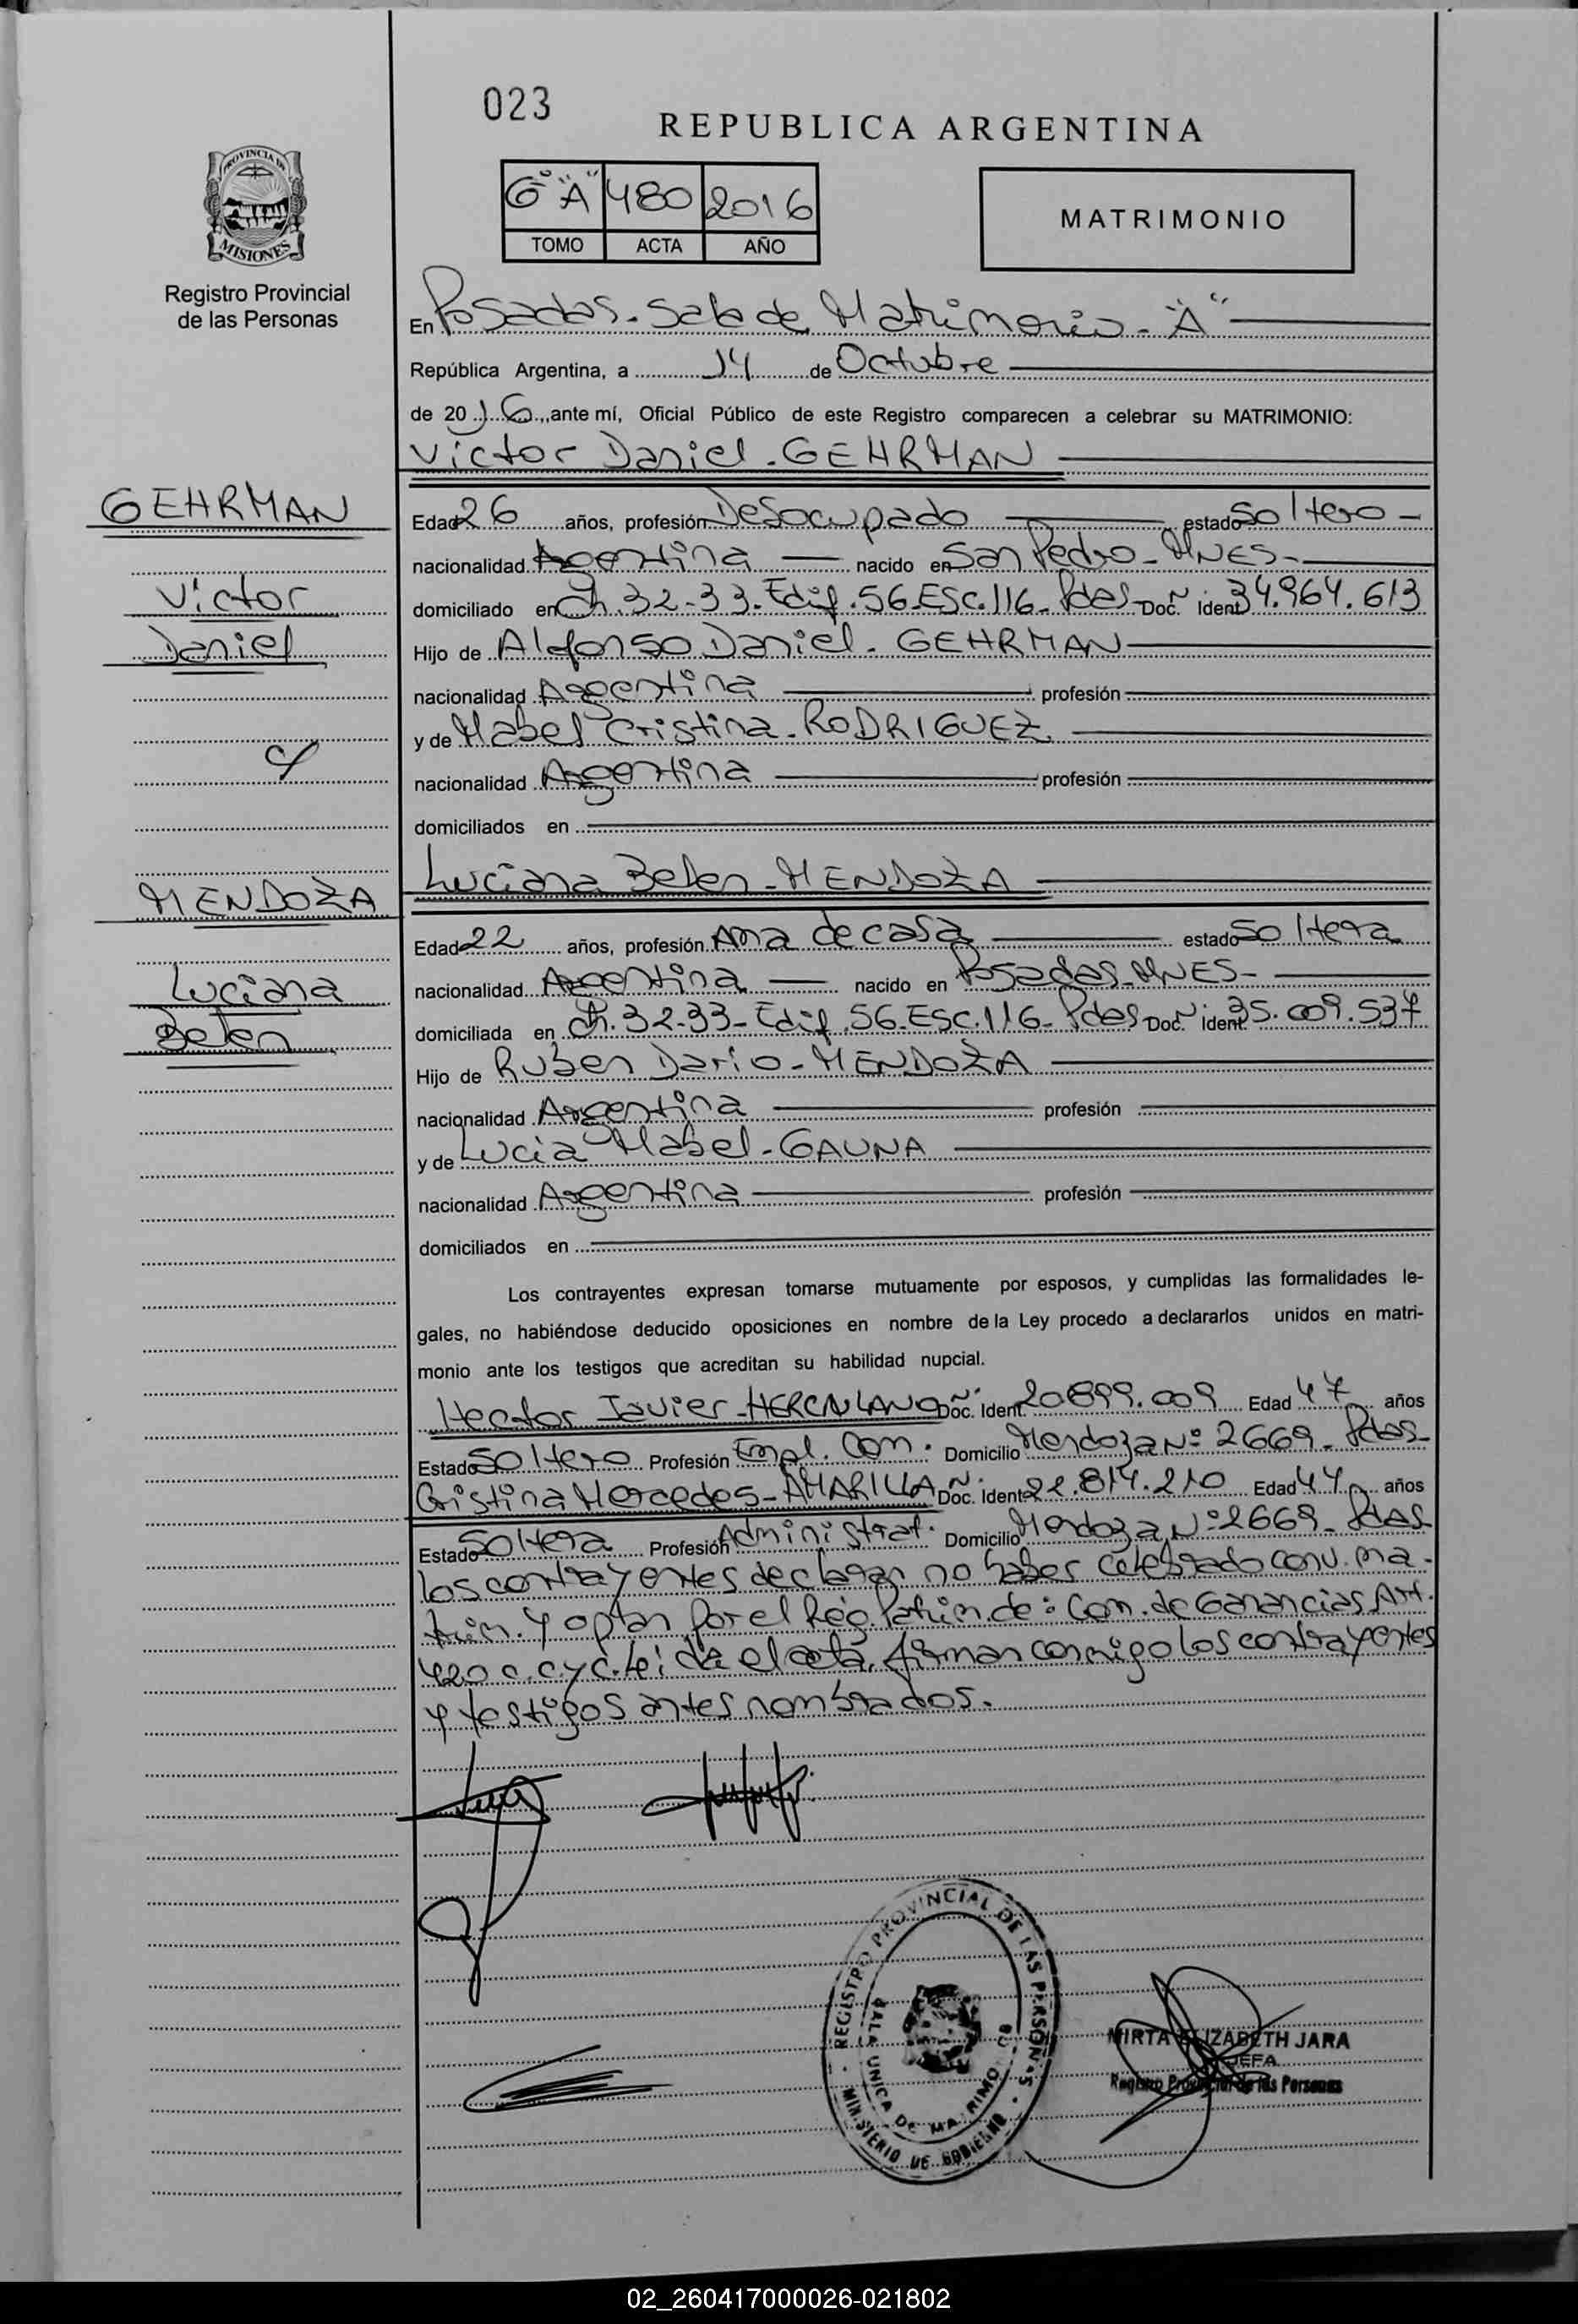 023
REPUBLICA ARGENTINA
6° "A" 480 2016
TOMO ACTA AÑO
MATRIMONIO
PROVINCIA DE
MISIONES
Registro Provincial
de las Personas
En Posadas - Sala de Matrimonio - "A"
República Argentina, a 14 de Octubre
de 2016, ante mí, Oficial Público de este Registro comparecen a celebrar su MATRIMONIO:
Victor Daniel - GEHRMAN
GEHRMAN
Victor
Daniel
c/
MENDOZA
Luciana
Belen
Edad 26 años, profesión Desocupado estado Soltero -
nacionalidad Argentina nacido en San Pedro - MNES -
domiciliado en Ch. 32-33 - Edif. 56 - ESC. 116 - Pdas - Doc. Ident. 34.964.613
Hijo de Alfonso Daniel - GEHRMAN
nacionalidad Argentina profesión
y de Mabel Cristina - RODRIGUEZ
nacionalidad Argentina profesión
domiciliados en
Luciana Belen - MENDOZA
Edad 22 años, profesión Ama de casa estado Soltera
nacionalidad Argentina nacido en Posadas - MNES -
domiciliada en Ch. 32-33 - Edif. 56 - ESC. 116 - Pdas Doc. Ident. 35.009.537
Hijo de Ruben Dario - MENDOZA
nacionalidad Argentina profesión
y de Lucia Mabel - GAUNA
nacionalidad Argentina profesión
domiciliados en
Los contrayentes expresan tomarse mutuamente por esposos, y cumplidas las formalidades le-
gales, no habiéndose deducido oposiciones en nombre de la Ley procedo a declararlos unidos en matri-
monio ante los testigos que acreditan su habilidad nupcial.
Hector Javier - Doc. Ident. 20899.009 Edad 47 años
Estado Soltero Profesión Empl. Com. Domicilio Mendoza N° 2669 - Pdas -
Cristina Mercedes - AMARILLA Doc. Ident. 22.814.210 Edad 44 años
Estado Soltera Profesión Administrat. Domicilio Mendoza N° 2669 - Pdas
los contrayentes declaran no haber celebrado conv. ma-
trim. y optan por el Rég. Patrim. de: Com. de Ganancias Art.
420 c.c.y c. Leída el acta, firman conmigo los contrayentes
y testigos antes nombrados.
REGISTRO PROVINCIAL DE LAS PERSONAS
SALA UNICA DE MATRIMONIOS
MINISTERIO DE GOBIERNO
MIRTA ELIZABETH JARA
JEFA
Registro Provincial de las Personas
02_260417000026-021802